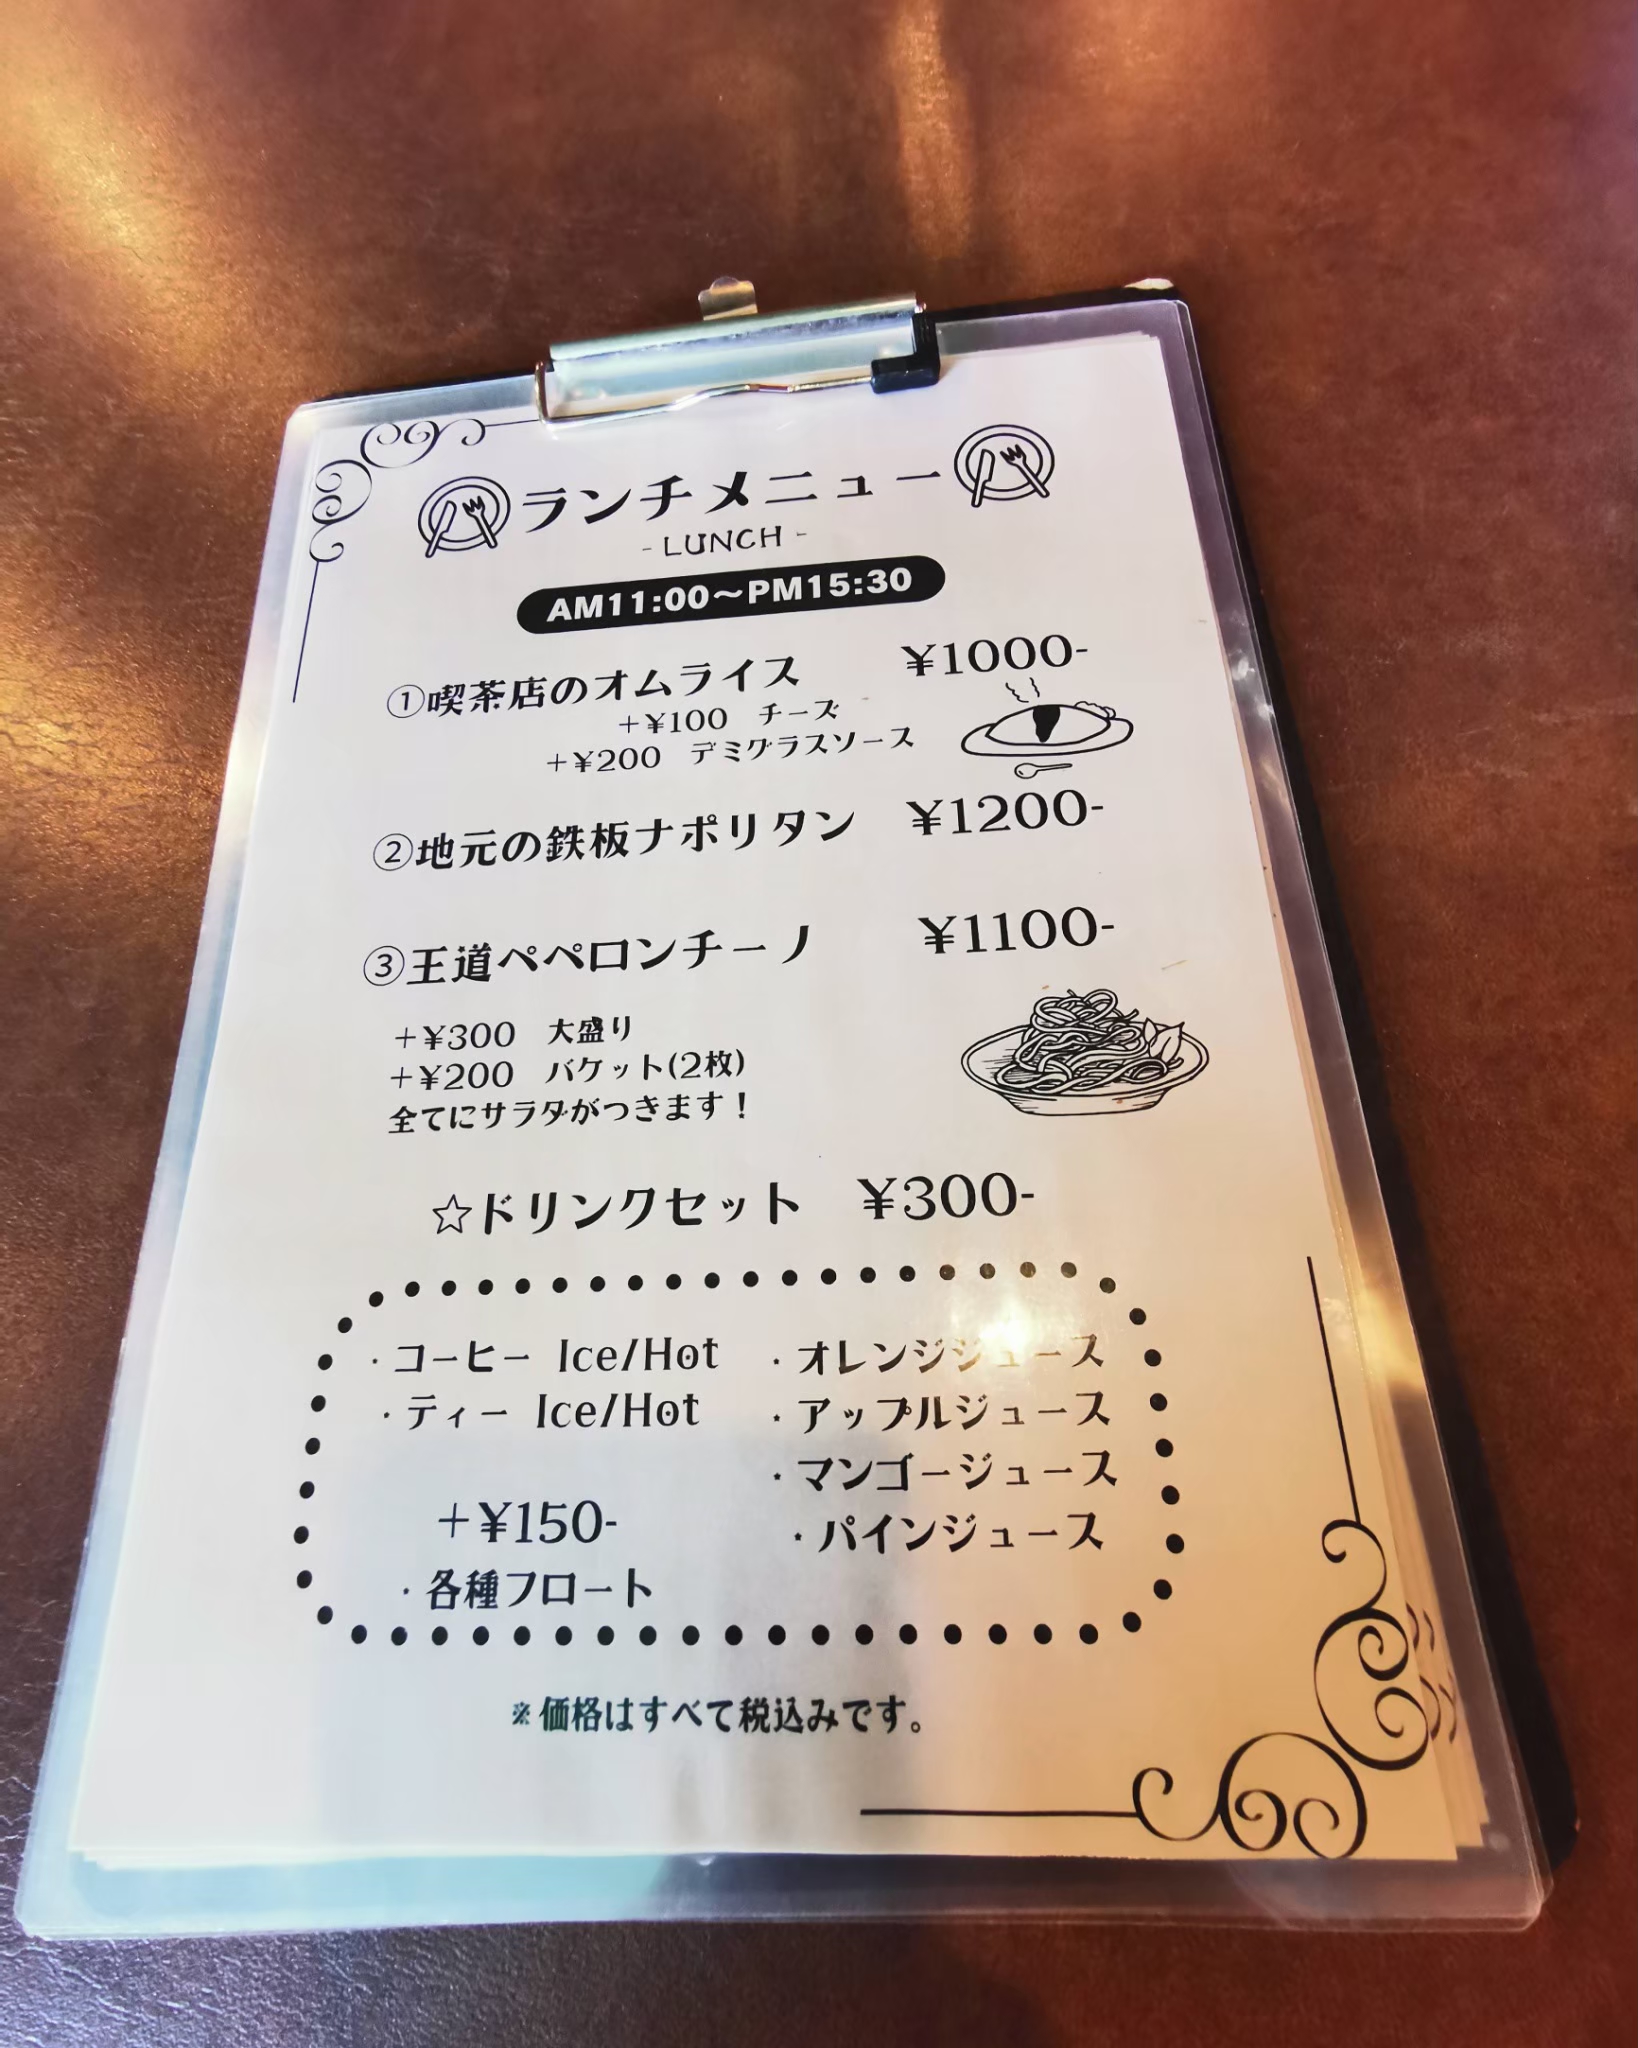 ランチメニュー
- LUNCH -
AM11:00～PM15:30
①喫茶店のオムライス ¥1000-
+¥100 チーズ
+¥200 デミグラスソース
②地元の鉄板ナポリタン ¥1200-
③王道ペペロンチーノ ¥1100-
+¥300 大盛り
+¥200 バケット(2枚)
全てにサラダがつきます！
☆ドリンクセット ¥300-
・コーヒー Ice/Hot
・ティー Ice/Hot
+¥150-
・各種フロート
・オレンジジュース
・アップルジュース
・マンゴージュース
・パインジュース
※価格はすべて税込みです。